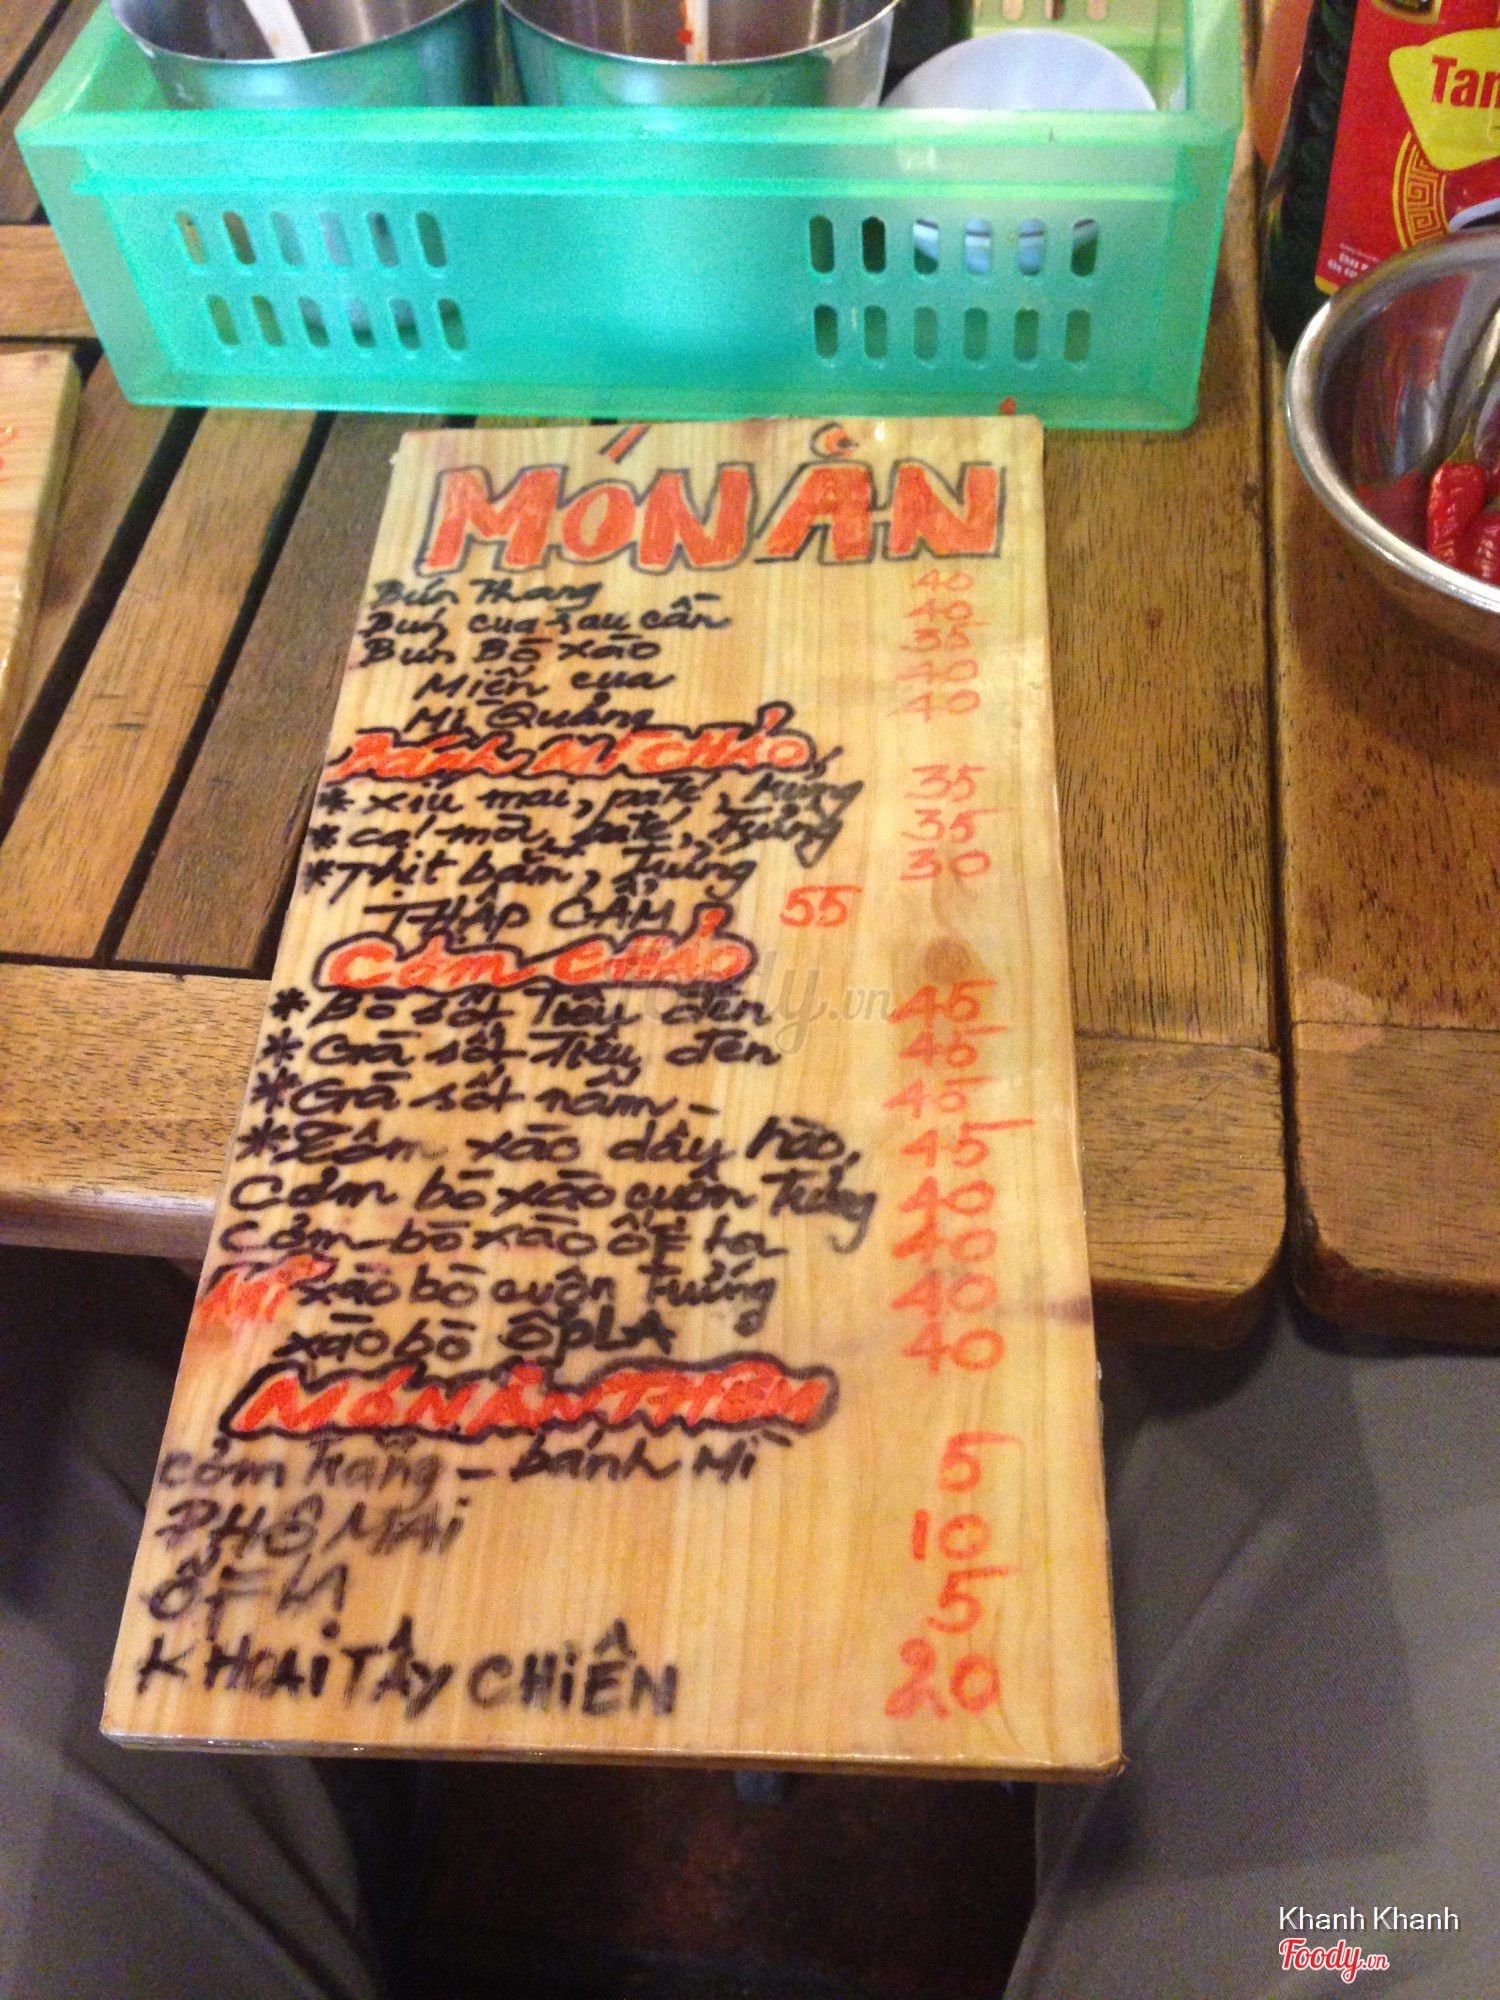 Tan
MÓN ĂN
Bún Thang 40
Bún cua rau cần 40
Bún Bò xào 35
Miến cua 40
Mì Quảng 40
Bánh Mì CHẢO
* xíu mai, paté, trứng 35
* cá mòi, paté, Trứng 35
* Thịt bằm, Trứng 30
THẬP CẨM 55
Cơm CHẢO
* Bò sốt Tiêu đen 45
* Gà sốt Tiêu đen 45
* Gà sốt nấm 45
* Tôm xào dầu hào, 45
Cơm bò xào cuộn Trứng 40
Cơm bò xào ốp la 40
Mì xào bò cuộn Trứng 40
xào bò ốpLA 40
MÓN ĂN THÊM
Cơm trắng - bánh Mì 5
PHÔ MAI 10
5
KHOAI TÂY CHIÊN 20
Foody.vn
Khanh Khanh
Foody.vn